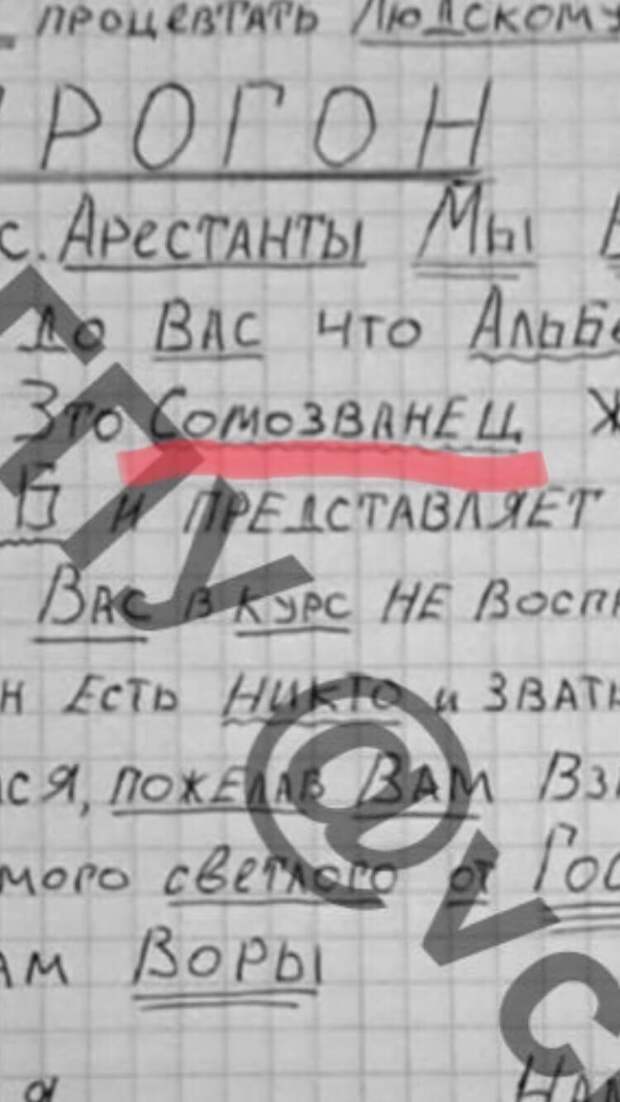 процевтать Людскому
РОГОН
с. Арестанты Мы
до Вас что Альбе
Это Сомозванец Ж
Б и представляет
Вас в курс не Восп
н Есть Никто и звать
ся, пожелав Вам Вз
мого светлого от Гос
ам Воры
я Нам
ГПУ @vc